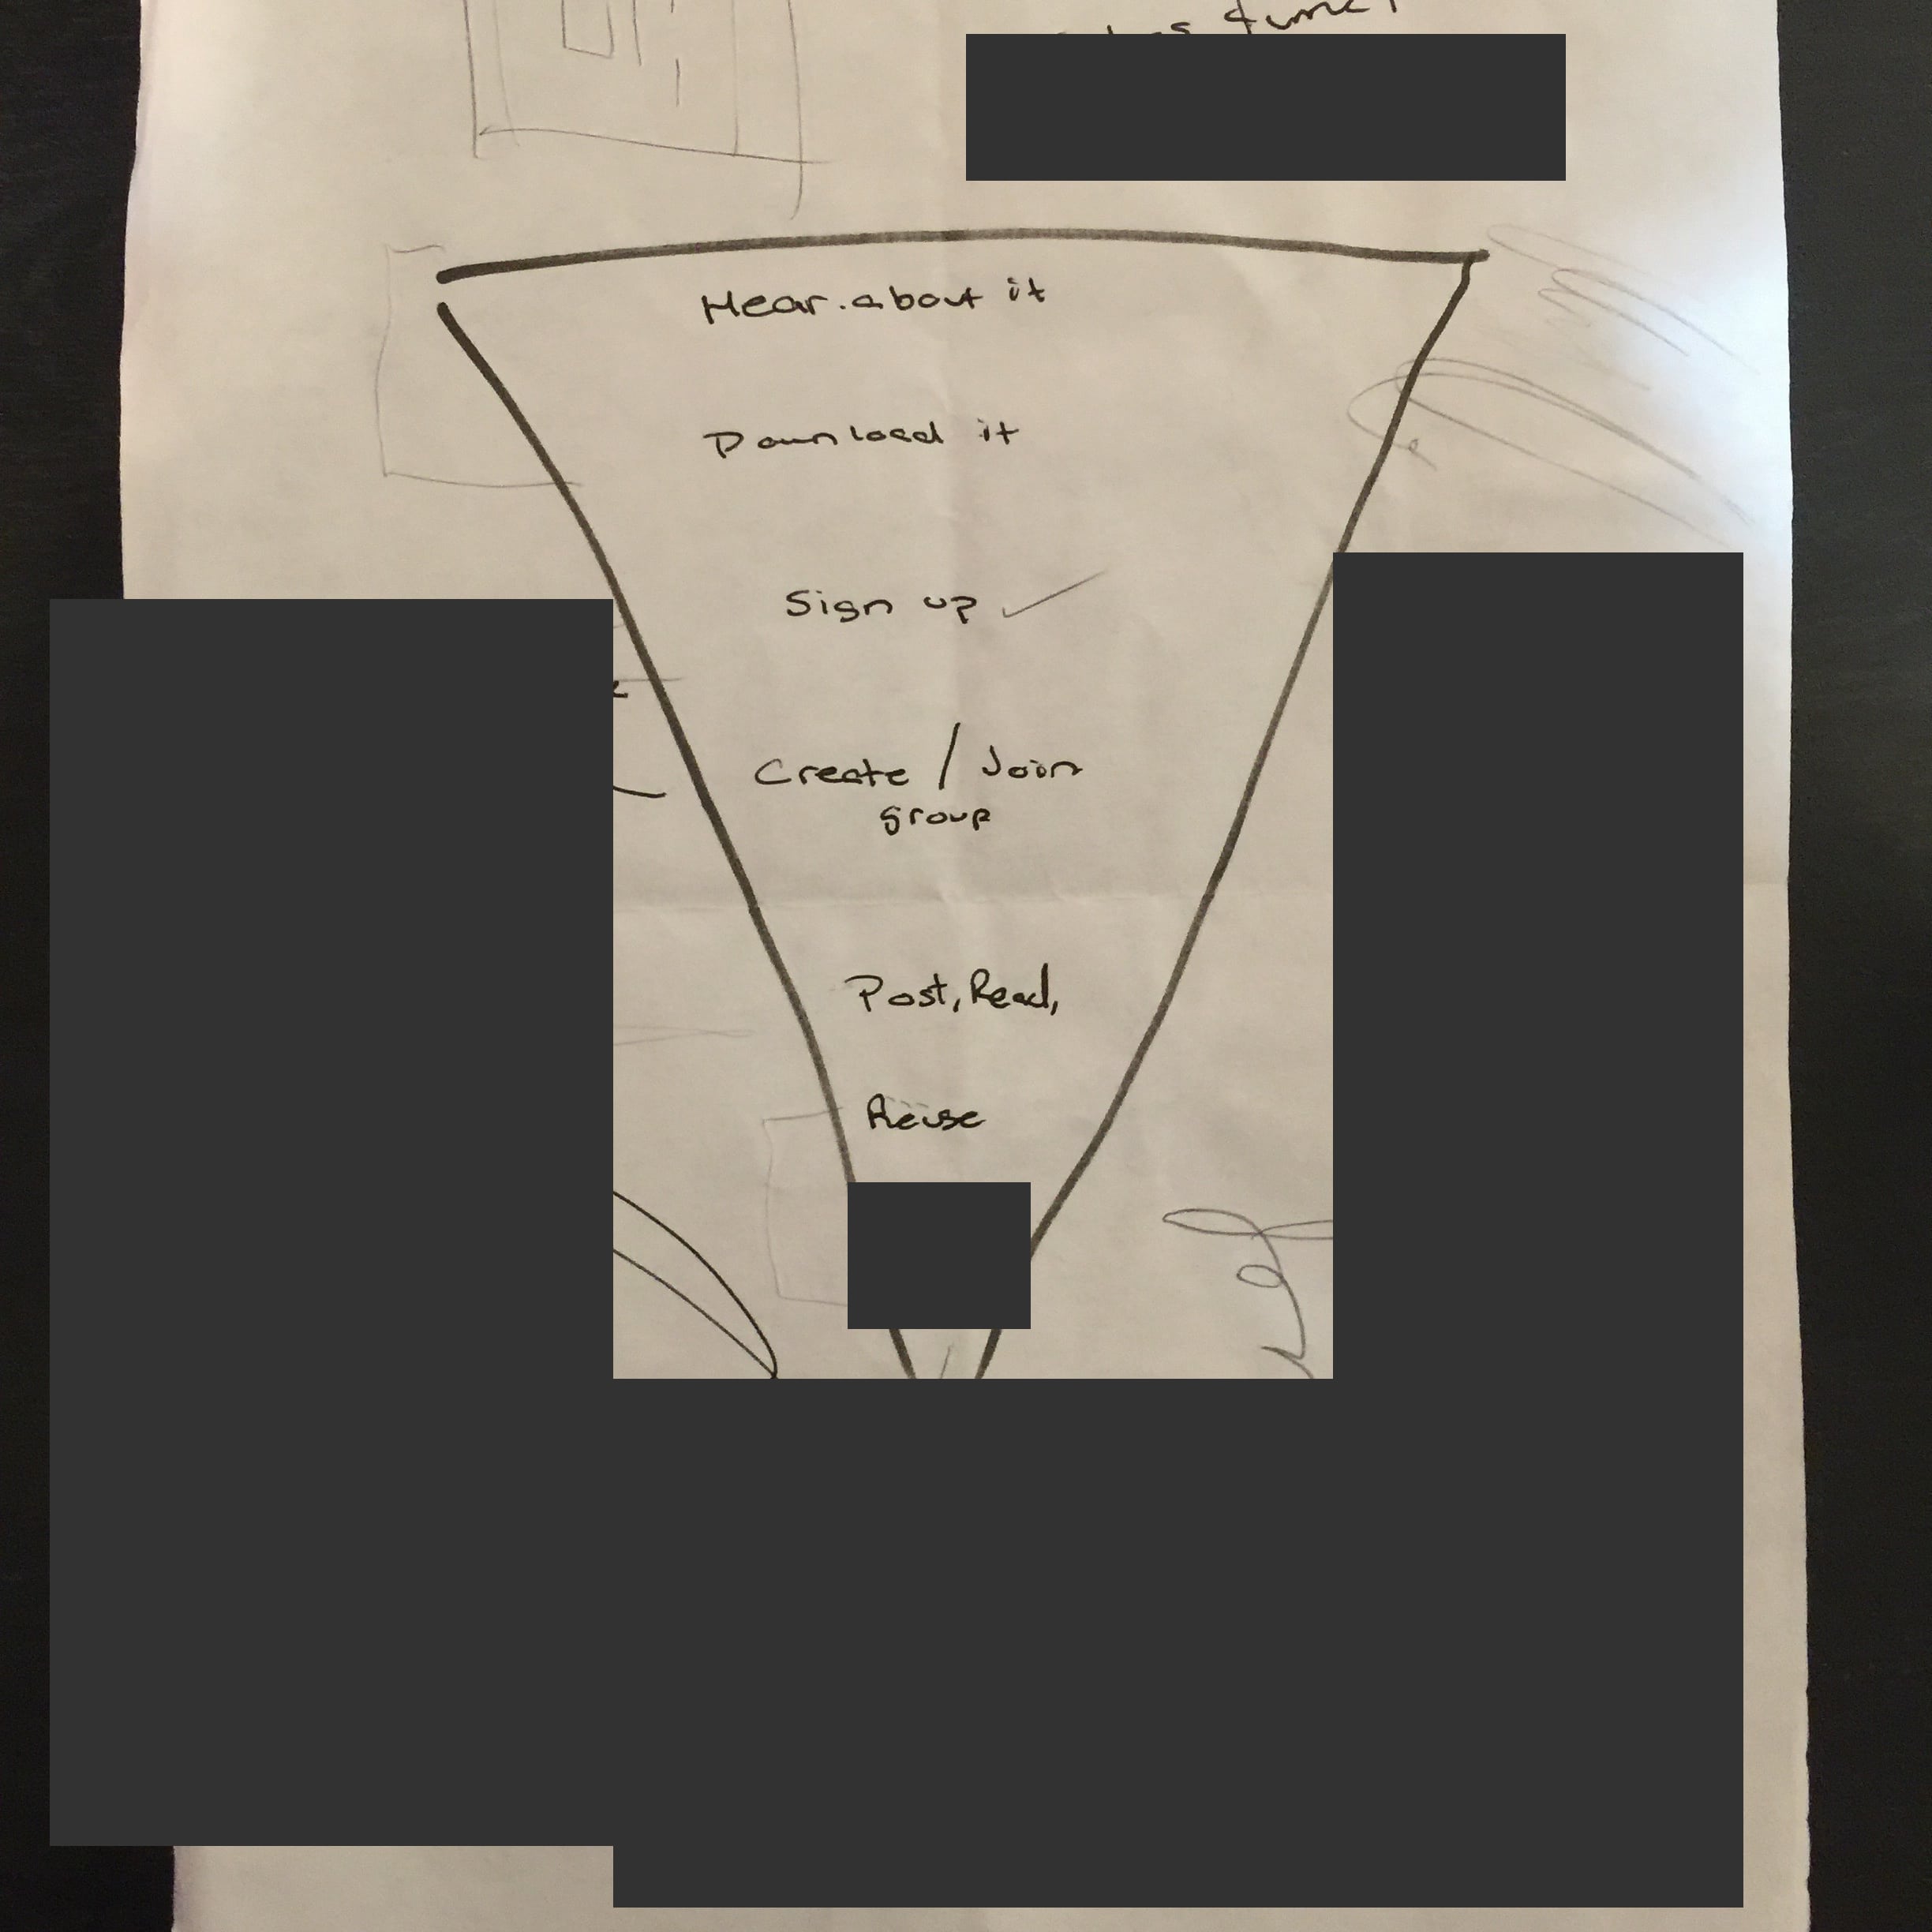 funnel
Hear about it
Download it
Sign up
Create / Join
group
Post, Read,
Reuse